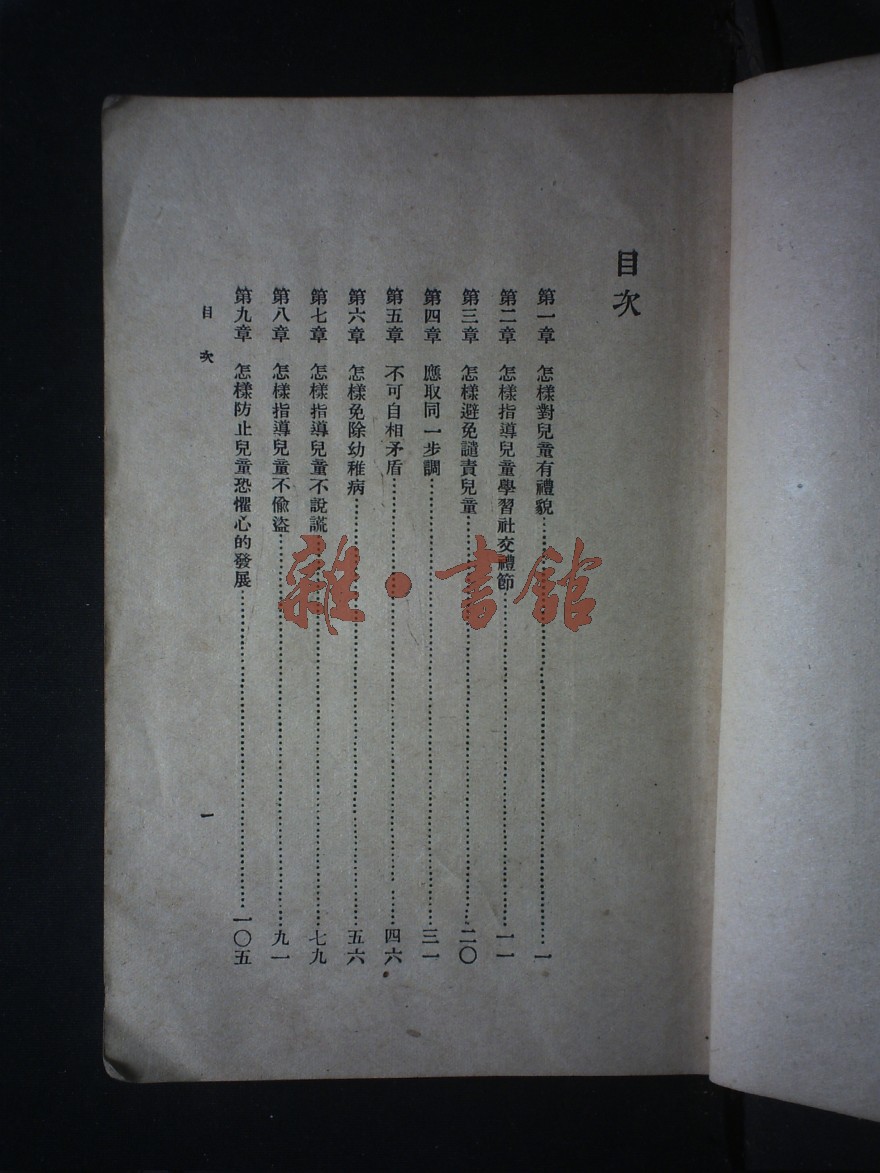 目次
第一章　怎樣對兒童有禮貌……一
第二章　怎樣指導兒童學習社交禮節……一一
第三章　怎樣避免譴責兒童……二〇
第四章　應取同一步調……三一
第五章　不可自相矛盾……四六
第六章　怎樣免除幼稚病……五六
第七章　怎樣指導兒童不說謊……七九
第八章　怎樣指導兒童不偷盜……九一
第九章　怎樣防止兒童恐懼心的發展……一〇五
目次　一
雜·書館